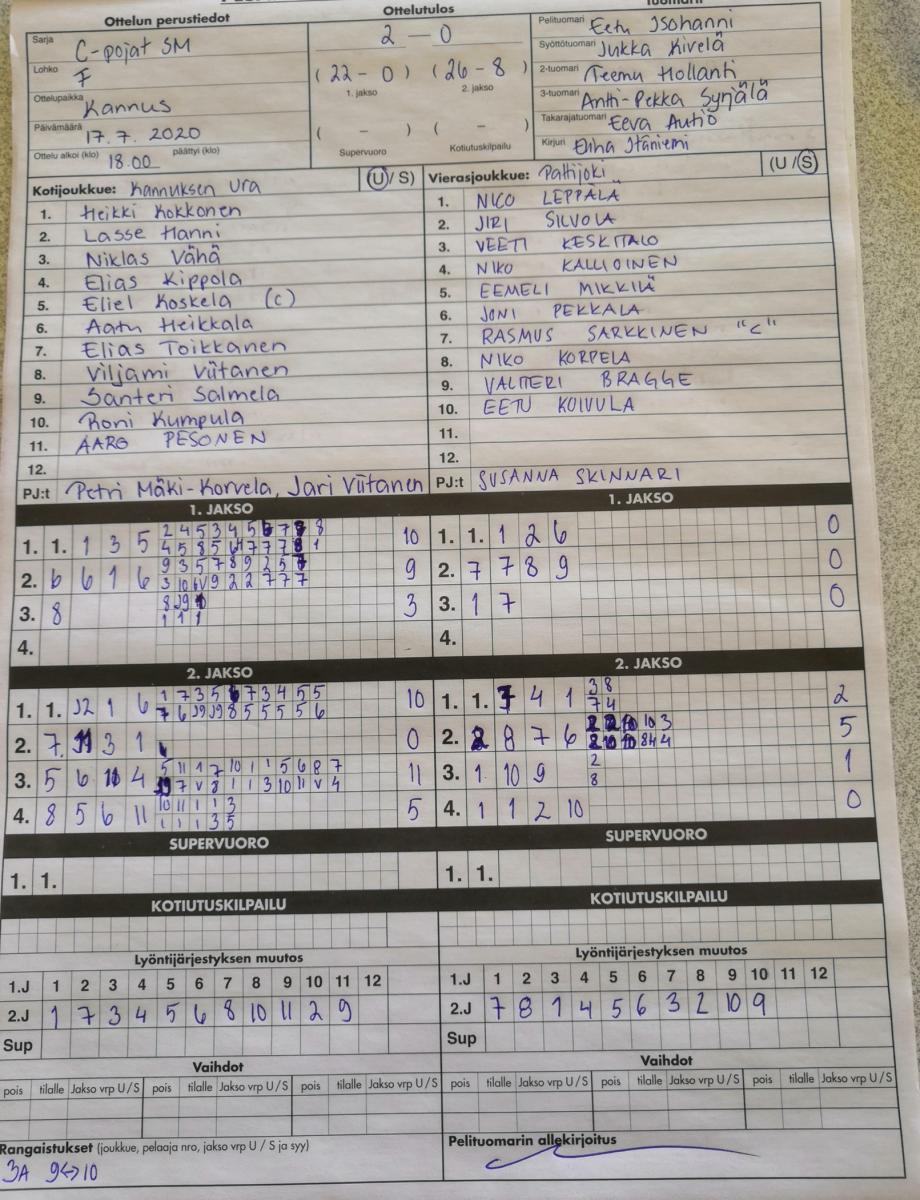 Ottelun perustiedot
Sarja C-pojat SM
Lohko F
Ottelupaikka Kannus
Päivämäärä 17.7. 2020
Ottelu alkoi (klo) 18.00 päättyi (klo)
Ottelutulos
2 - 0
(22 - 0) (26 - 8)
1. jakso 2. jakso
( - ) ( - )
Supervuoro Kotiutuskilpailu
Pelituomari Eetu Isohanni
Syöttötuomari Jukka Kivelä
2-tuomari Teemu Hollanti
3-tuomari Antti-Pekka Syrjälä
Takarajatuomari Eeva Autio
Kirjuri Itäniemi
Kotijoukkue: Kannuksen Ura (U/S)
1. Heikki Kokkonen
2. Lasse Hanni
3. Niklas Vähä
4. Elias Kippola
5. Eliel Koskela (C)
6. Aatu Heikkala
7. Elias Toikkanen
8. Viljami Viitanen
9. Santeri Salmela
10. Roni Kumpula
11. AARO PESONEN
12.
PJ:t Petri Mäki-Korvela, Jari Viitanen
Vierasjoukkue: Pattijoki (U/S)
1. NICO LEPPÄLÄ
2. JIRI SILVOLA
3. VEETI KESKITALO
4. NIKO KALLIOINEN
5. EEMELI MIKKILÄ
6. JONI PEKKALA
7. RASMUS SARKKINEN "C"
8. NIKO KORPELA
9. VALTTERI BRAGGE
10. EETU KOIVULA
11.
12.
PJ:t SUSANNA SKINNARI
1. JAKSO
1. 1. 1 3 5 10
2. 6 6 1 6 9
3. 8 3
4.
1. JAKSO
1. 1. 1 2 6 0
2. 7 7 8 9 0
3. 1 7 0
4.
2. JAKSO
1. 1. 1 6 10
2. 7 3 1 0
3. 5 6 4 11
4. 8 5 6 11 5
2. JAKSO
1. 1. 4 1 3 8 7 4 2
2. 8 7 6 5
3. 1 10 9 2 8 1
4. 1 1 2 10 0
SUPERVUORO
1. 1.
SUPERVUORO
1. 1.
KOTIUTUSKILPAILU
KOTIUTUSKILPAILU
Lyöntijärjestyksen muutos
1.J 1 2 3 4 5 6 7 8 9 10 11 12
2.J 1 7 3 4 5 6 8 10 11 2 9
Sup
Lyöntijärjestyksen muutos
1.J 1 2 3 4 5 6 7 8 9 10 11 12
2.J 7 8 1 4 5 6 3 2 10 9
Sup
Vaihdot
pois tilalle Jakso vrp U/S pois tilalle Jakso vrp U/S pois tilalle Jakso vrp U/S
Vaihdot
pois tilalle Jakso vrp U/S pois tilalle Jakso vrp U/S pois tilalle Jakso vrp U/S
Rangaistukset (joukkue, pelaaja nro, jakso vrp U / S ja syy)
3A 9↔10
Pelituomarin allekirjoitus